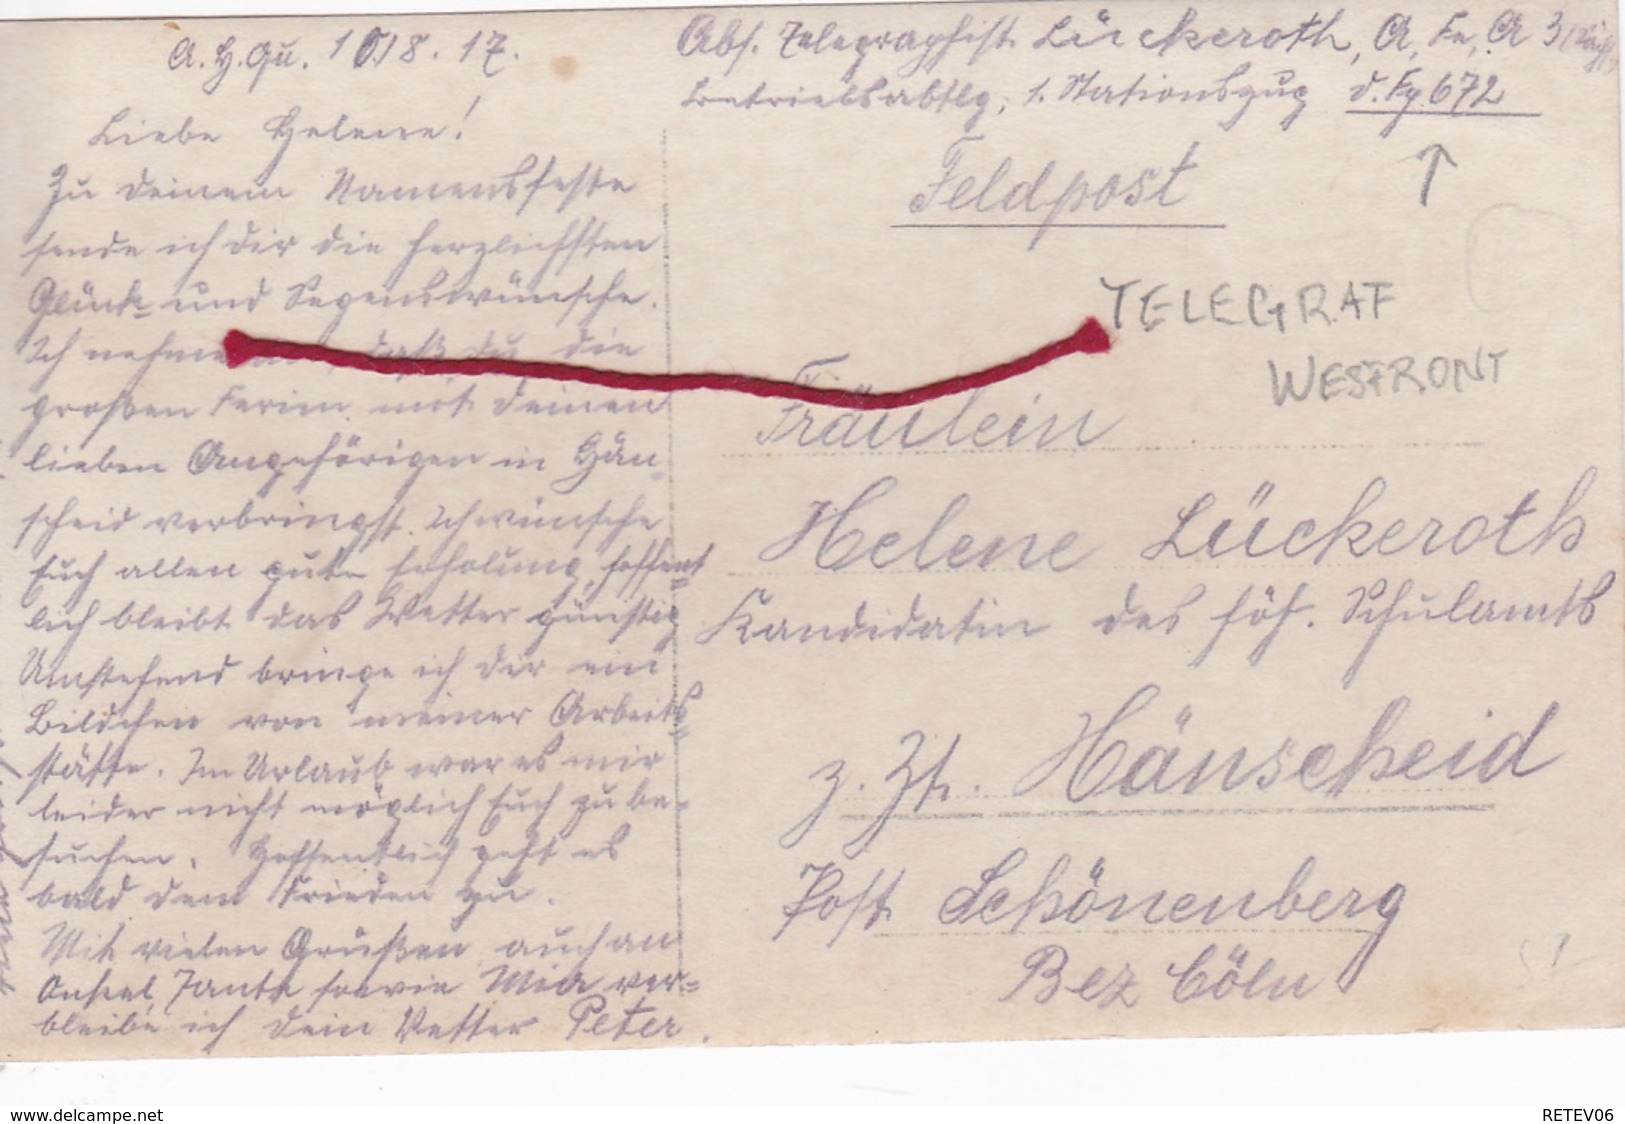 A. H. Qu. 10.8.17.
Liebe Helene!
Zu deinem Namensfeste
sende ich dir die herzlichsten
Glück- und Segenswünsche.
Ich nehme an, daß du die
großen Ferien mit deinen
lieben Angehörigen in Hän-
scheid verbringst. Ich wünsche
Euch allen gute Erholung, hoffent-
lich bleibt das Wetter günstig
Umstehend bringe ich dir ein
Bildchen von meiner Arbeits-
stätte. Im Urlaub war es mir
leider nicht möglich Euch zu be-
suchen. Hoffentlich geht es
bald dem Frieden zu.
Mit vielen Grüßen, auch an
Onkel, Tante sowie Mia ver-
bleibe ich dein Vetter Peter.
Abs. Telegraphist Lückeroth, A. Fe. A 3
Betriebsabtlg. 1. Stationszug d. Fp. 672
Feldpost
TELEGRAF
WESFRONT
Fräulein
Helene Lückeroth
Kandidatin des höh. Schulamts
z. Zt. Hänscheid
Post Schönenberg
Bez Cöln
www.delcampe.net
RETEV06